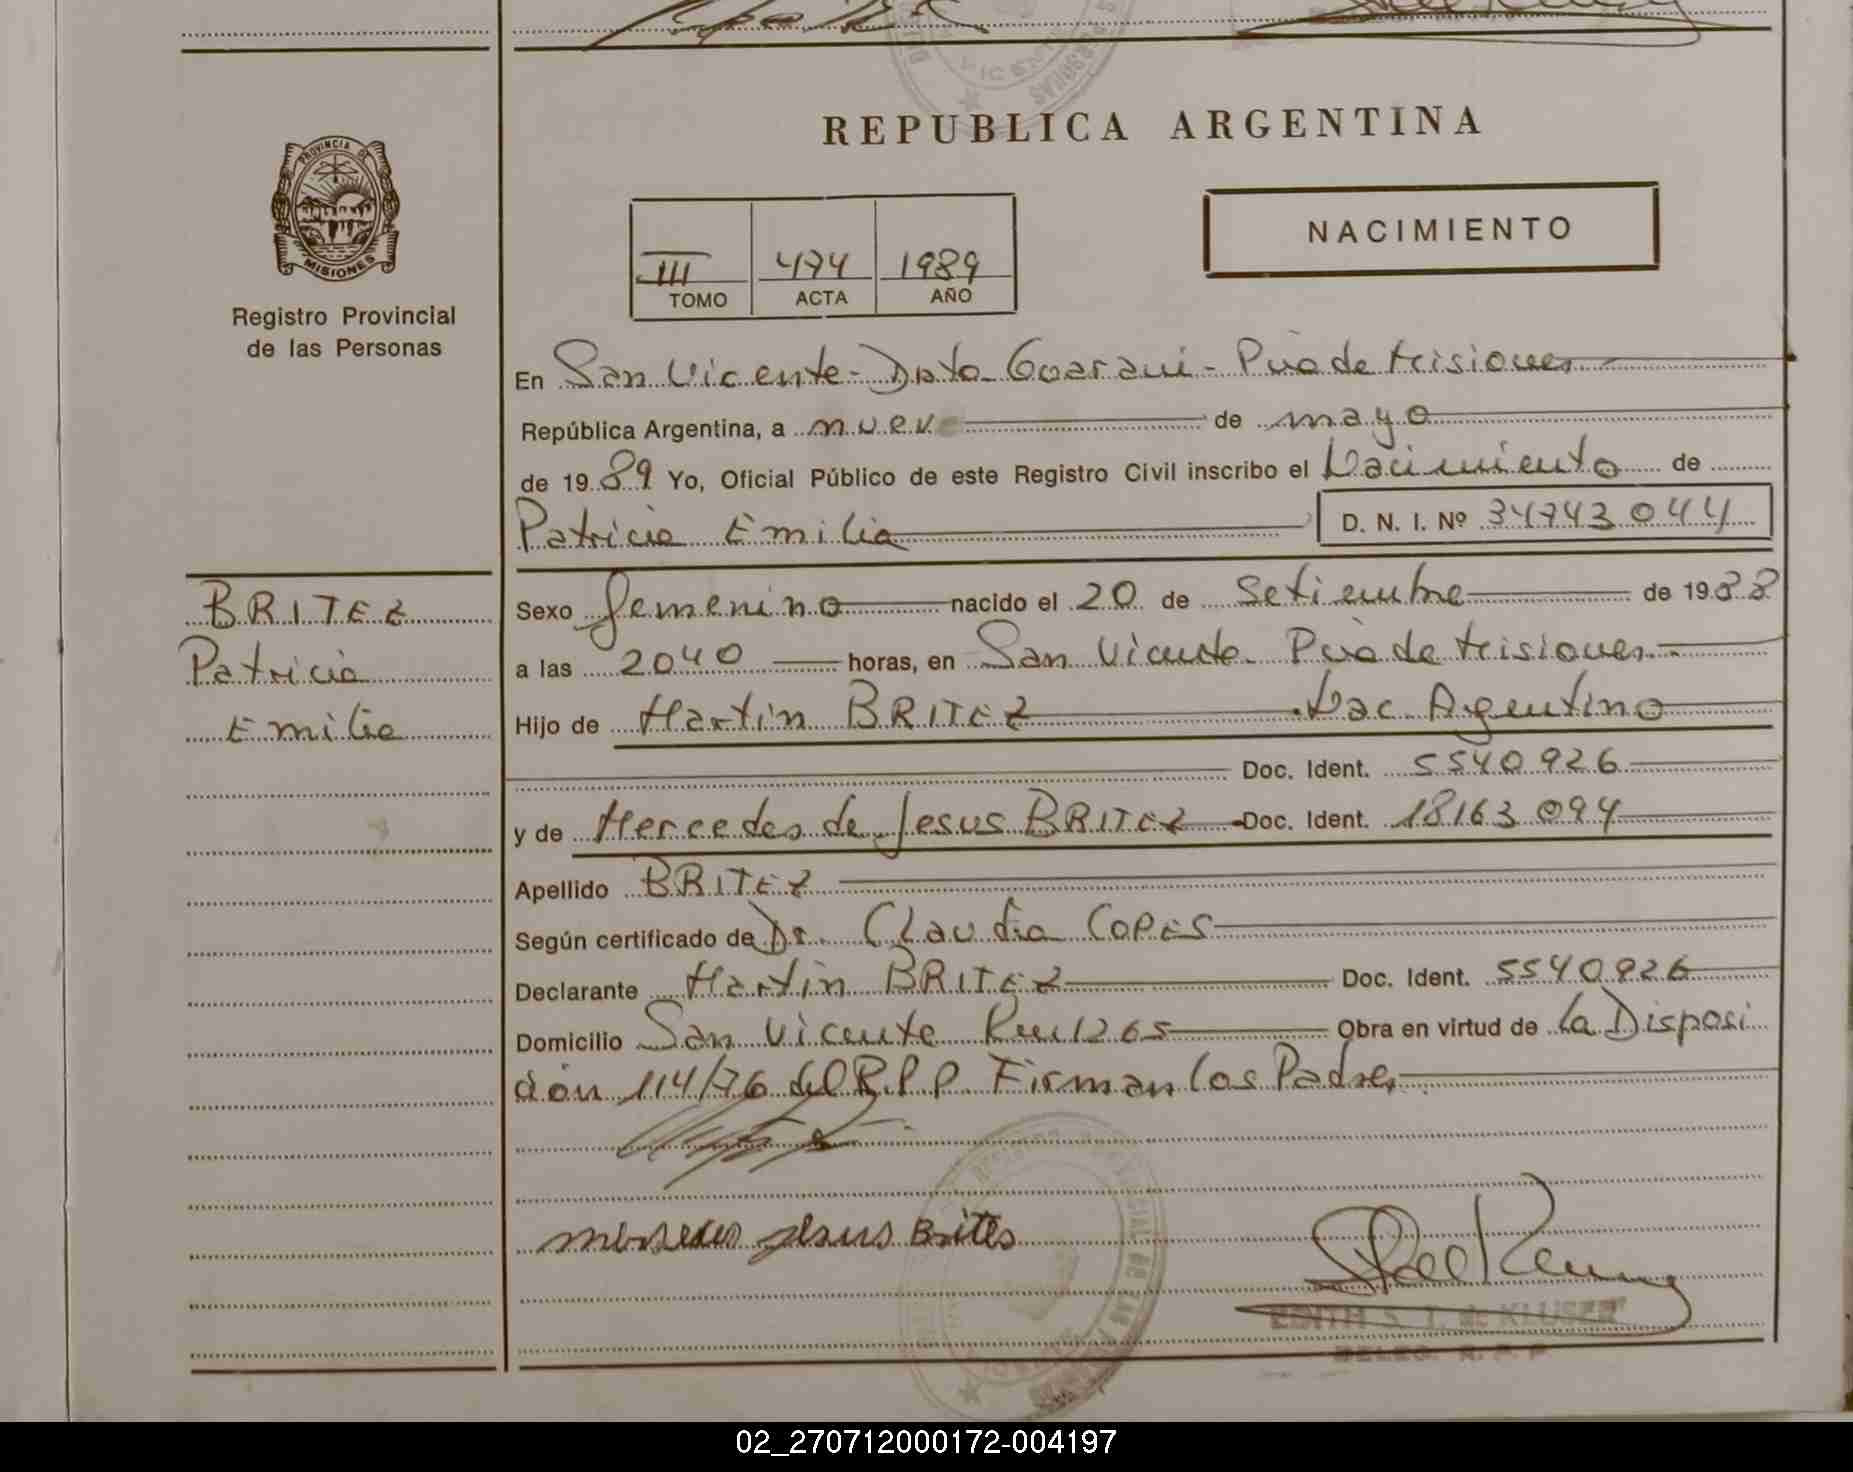 REPUBLICA ARGENTINA
PROVINCIA DE
MISIONES
Registro Provincial
de las Personas
NACIMIENTO
III 474 1989
TOMO ACTA AÑO
En San Vicente - Dpto Guarani - Pcia de Misiones
República Argentina, a nueve de mayo
de 1989 Yo, Oficial Público de este Registro Civil inscribo el Nacimiento de
Patricia Emilia D. N. I. Nº 34743044
BRITEZ
Patricia
Emilia
Sexo femenino nacido el 20 de Setiembre de 1988
a las 2040 horas, en San Vicente Pcia de Misiones
Hijo de Martin BRITEZ Nac Argentino
Doc. Ident. 5540926
y de Mercedes de Jesus BRITEZ Doc. Ident. 18163094
Apellido BRITEZ
Según certificado de Dr. Claudia COPES
Declarante Martin BRITEZ Doc. Ident. 5540926
Domicilio San Vicente 1265 Obra en virtud de la Disposi
ción 114/76 del R.P.P Firman los Padres
Jesus Brites
EDITH S. T. de KLUSER
DELEG. R. P. P
02_270712000172-004197